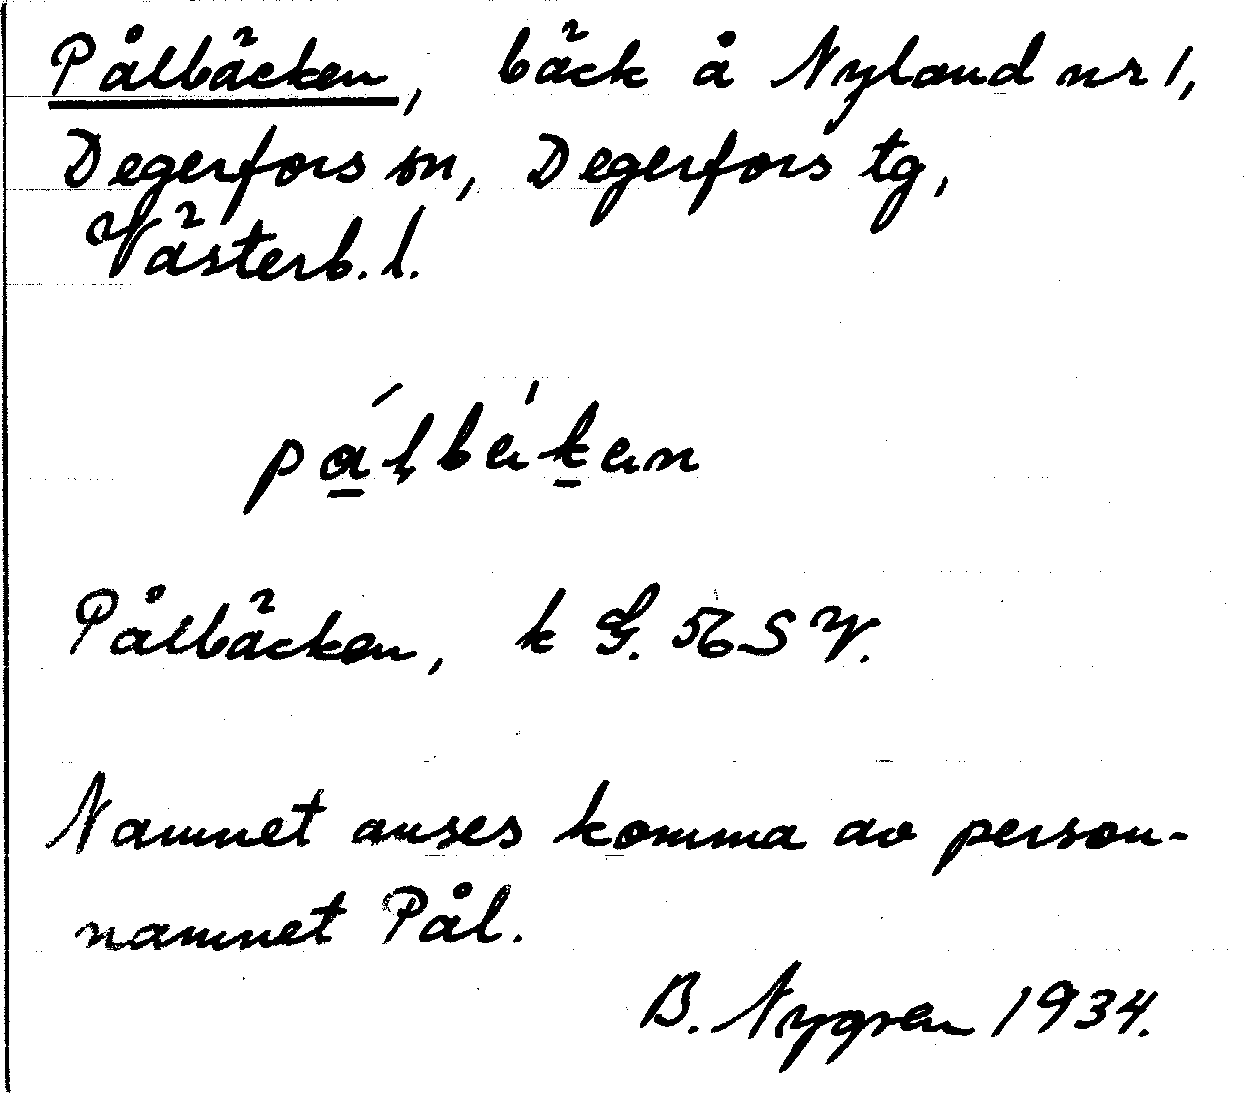 Pålbäcken, bäck å Nyland nr 1,
Degerfors sn, Degerfors tg,
Västerb. l.
Pålbäcken, k G. 56 S V.
Namnet anses komma av person-
namnet Pål.
B. Nygren 1934.